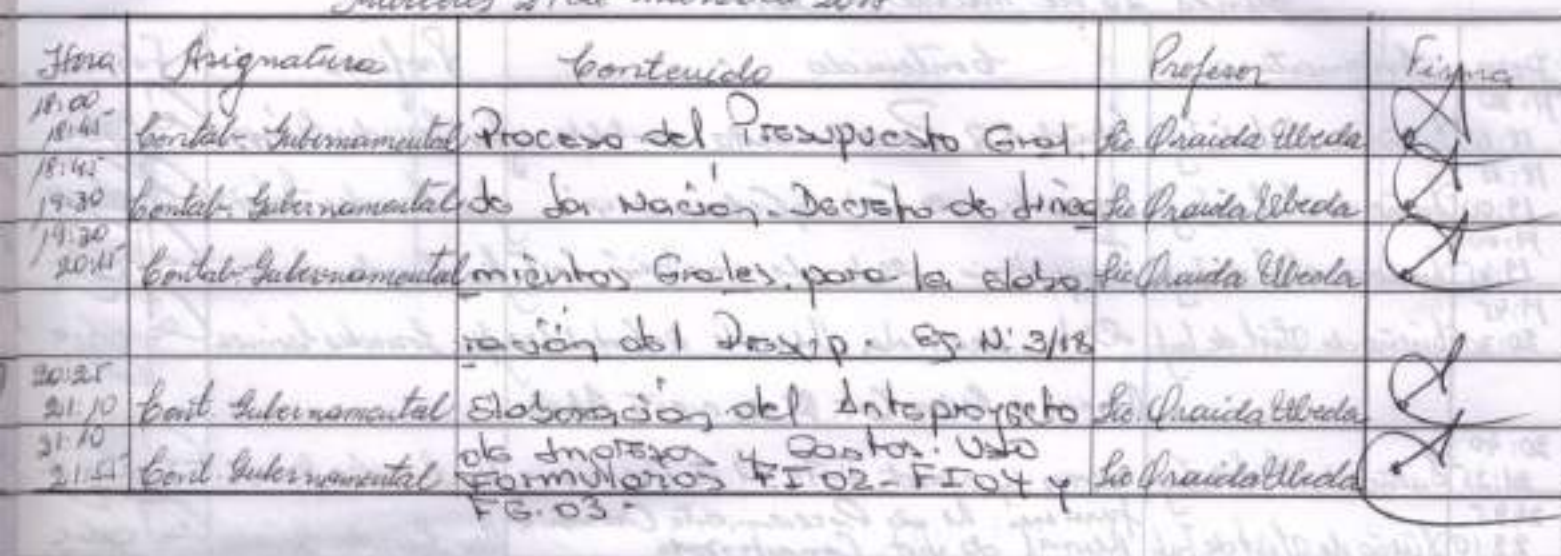 Hora Asignatura Contenido Profesor Firma
18:00
18:45 Contab. Gubernamental Proceso del Presupuesto Gral. Lic. Oraida Ubeda
18:45
19:30 Contab. Gubernamental de la Nación. Decreto de Linea Lic. Oraida Ubeda
19:30
20:15 Contab. Gubernamental mientos Grales. para la elabo Lic. Oraida Ubeda
ración del Presup. Ej. N: 3/18
20:25
21:10 Cont. Gubernamental Elaboración del Anteproyecto Lic. Oraida Ubeda
21:10
21:55 Cont. Gubernamental de Ingresos y Gastos. Uso Lic. Oraida Ubeda
Formularos FI 02 - FI 04 y
FG. 03.-